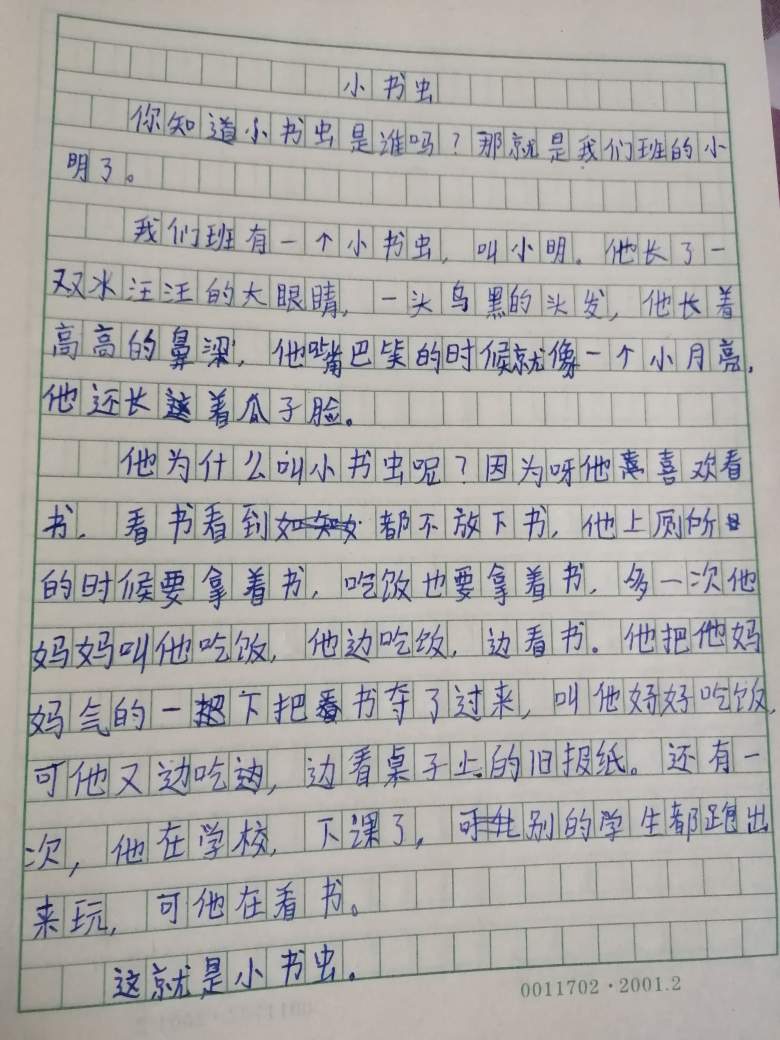 小书虫
你知道小书虫是谁吗？那就是我们班的小
明了。
我们班有一个小书虫，叫小明。他长了一
双水汪汪的大眼睛，一头乌黑的头发，他长着
高高的鼻梁，他嘴巴笑的时候就像一个小月亮，
他还长着瓜子脸。
他为什么叫小书虫呢？因为呀他喜欢看
书，看书看到都不放下书，他上厕所
的时候要拿着书，吃饭也要拿着书，多一次他
妈妈叫他吃饭，他边吃饭，边看书。他把他妈
妈气的一下把书夺了过来，叫他好好吃饭，
可他又边吃边，边看桌子上的旧报纸。还有一
次，他在学校，下课了，别的学生都跑出
来玩，可他在看书。
这就是小书虫。
0011702·2001.2